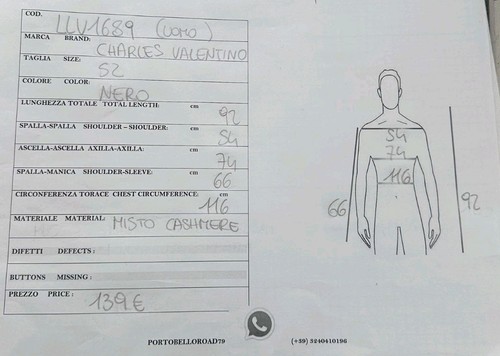 COD. LLV1689 (UOMO)
MARCA BRAND: CHARLES VALENTINO
TAGLIA SIZE: 52
COLORE COLOR: NERO
LUNGHEZZA TOTALE TOTAL LENGTH: cm 92
SPALLA-SPALLA SHOULDER – SHOULDER: cm 54
ASCELLA-ASCELLA AXILLA-AXILLA: cm 74
SPALLA-MANICA SHOULDER-SLEEVE: cm 66
CIRCONFERENZA TORACE CHEST CIRCUMFERENCE: cm 116
MATERIALE MATERIAL: MISTO CASHMERE
DIFETTI DEFECTS :
BUTTONS MISSING :
PREZZO PRICE : 139 €
54
74
116
66
92
PORTOBELLOROAD79 (+39) 3240410196